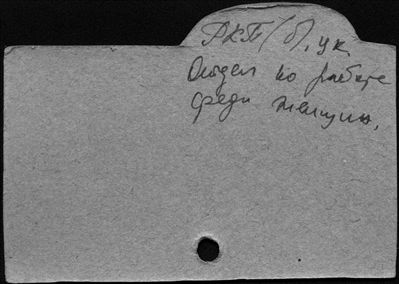 РКП/б/, ук.
Отдел по работе
среди женщин.